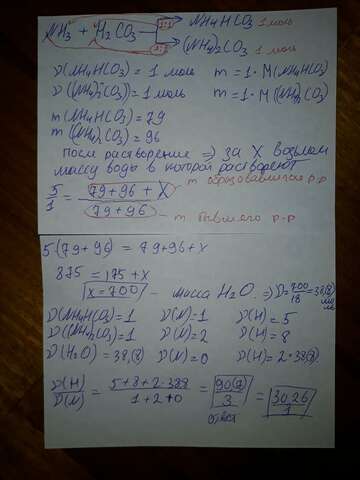 NH₃ + H₂CO₃ 1:1 → NH₄HCO₃ 1 моль
2:1 → (NH₄)₂CO₃ 1 моль
ν(NH₄HCO₃) = 1 моль m = 1·M(NH₄HCO₃)
ν((NH₄)₂CO₃) = 1 моль m = 1·M((NH₄)₂CO₃)
m(NH₄HCO₃) = 79
m((NH₄)₂CO₃) = 96
после растворение ⇒ за X возьмем
массу воды в которой растворяют
5/1 = (79+96+X)/(79+96) m образовавшегося р-р
m бывшего р-р
5(79+96) = 79+96+X
875 = 175+X
X = 700 - масса H₂O ⇒ ν = 700/18 = 38,(8) моль
ν(NH₄HCO₃) = 1 ν(N) = 1 ν(H) = 5
ν((NH₄)₂CO₃) = 1 ν(N) = 2 ν(H) = 8
ν(H₂O) = 38,(8) ν(N) = 0 ν(H) = 2·38(8)
ν(H)/ν(N) = (5+8+2·388)/(1+2+0) = 90(7)/3 = 30,26/1
ответ